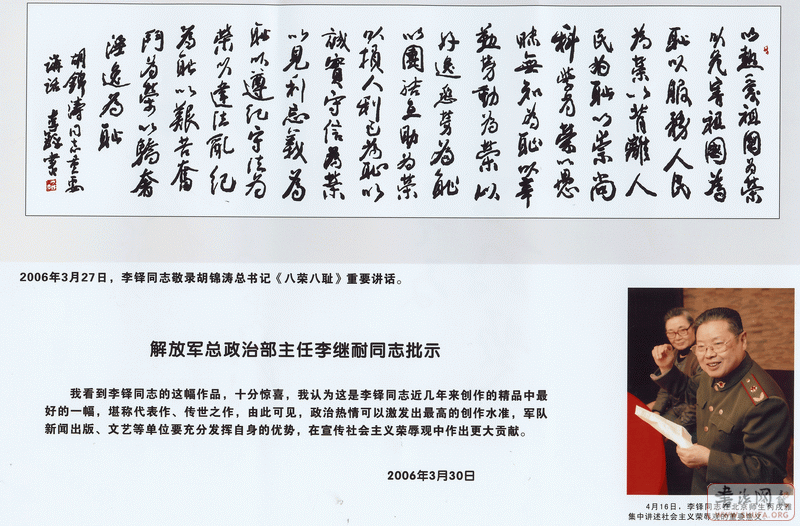 以熱愛祖國为荣
以危害祖國為
恥以服務人民
為荣以背離人
民为恥以崇尚
科学为荣以愚
昧無知为恥以辛
勤勞動为荣以
好逸惡勞为恥
以團結互助为荣
以損人利己为恥以
誠實守信為荣
以見利忘義為
恥以遵纪守法为
荣以違法亂纪
為恥以艱苦奮
鬥为榮以驕奢
淫逸为恥
胡錦濤同志重要
講話 李鐸書
2006年3月27日，李铎同志敬录胡锦涛总书记《八荣八耻》重要讲话。
解放军总政治部主任李继耐同志批示
我看到李铎同志的这幅作品，十分惊喜，我认为这是李铎同志近几年来创作的精品中最
好的一幅，堪称代表作、传世之作，由此可见，政治热情可以激发出最高的创作水准，军队
新闻出版、文艺等单位要充分发挥自身的优势，在宣传社会主义荣辱观中作出更大贡献。
2006年3月30日
4月16日，李铎同志在北京师生
集中讲述社会主义荣辱观的重要意义
书法网